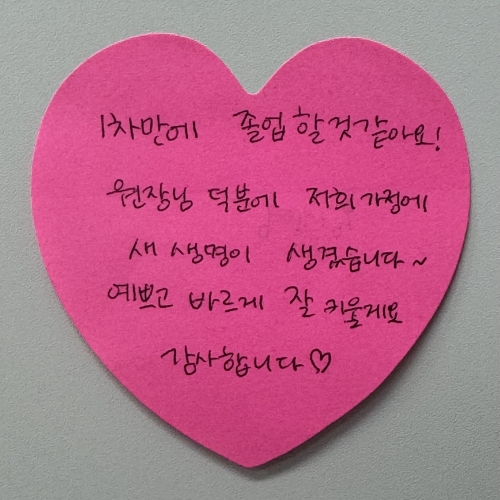 1차만에 졸업 할것같아요!
원장님 덕분에 저희 가정에
새 생명이 생겼습니다~
예쁘고 바르게 잘 키울게요
감사합니다♡